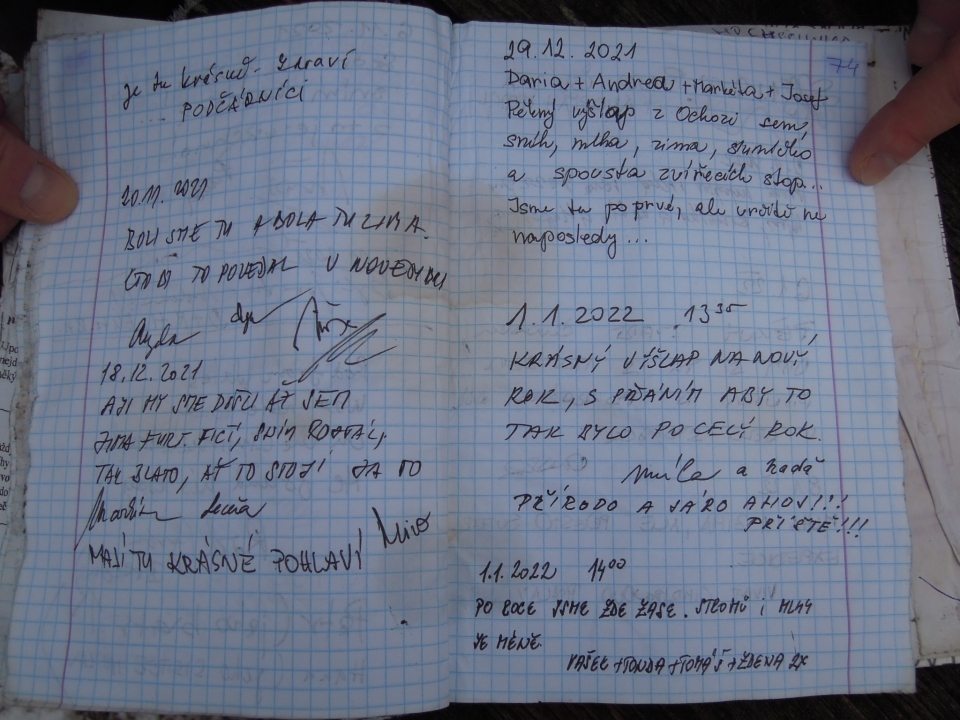 je tu krásně - zdraví
PODČÁDNÍCI
20.11. 2021
BOLI SME TU A BOLA TU ZIMA.
TO POVEDAL V NOVEMBRI
18.12. 2021
AJI MY SME DOŠLI AŽ SEM
ZIMA FURT FIČÍ, SNÍH ROZTÁL,
TAK BLATO, AŤ TO STOJÍ ZA TO
Martin Lucia
MAJÍ TU KRÁSNÉ POHLAVÍ Miro
74
29.12. 2021
Daria + Andrea + Markéta + Josef
Pěkný výšlap z Ochozi sem,
sníh, mlha, zima, sluníčko
a spousta zvířecích stop...
Jsme tu poprvé, ale určitě ne
naposledy...
1.1.2022 13 35
KRÁSNÝ VÍŠLAP NA NOVÝ,
ROK, S PŘÁNÍM ABY TO
TAK BYLO PO CELÝ ROK.
Míla a Naďa
PŘÍRODO A JÁRO AHOJ!!!
PŘÍŠTĚ!!!
1.1.2022 14 00
PO ROCE JSME ZDE ZASE. STROMŮ I MLHY
JE MÉNĚ.
VAŠEK + TONDA + TOMÁŠ + ZDENA 2X